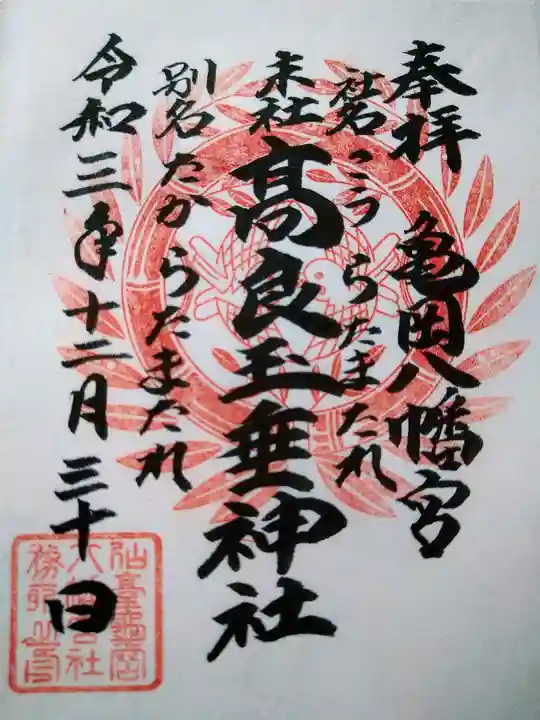 奉拝 亀岡八幡宮
社名 こうらたまたれ
末社 高良玉垂神社
別名 たからたまたれ
令和三年十二月三十日